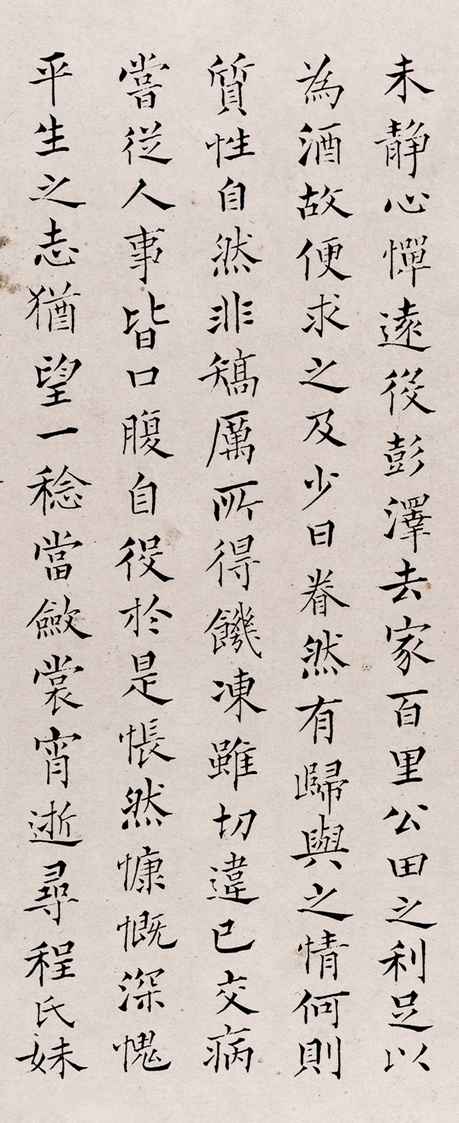 未静心憚遠役彭澤去家百里公田之利足以
為酒故便求之及少日眷然有歸與之情何則
質性自然非矯厲所得饑凍雖切違已交病
嘗從人事皆口腹自役於是悵然慷慨深愧
平生之志猶望一稔當斂裳宵逝尋程氏妹